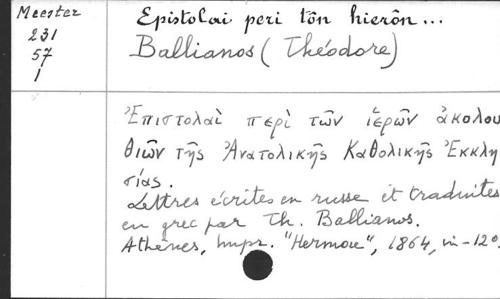 Meester
231
57
1
Epistolai peri tôn hierôn...
Ballianos (Théodore)
Ἐπιστολαὶ περὶ τῶν ἱερῶν ἀκολου
θιῶν τῆς Ἀνατολικῆς Καθολικῆς Ἐκκλη
σίας.
Lettres écrites en russe et traduites
en grec par Th. Ballianos.
Athènes, Impr. "Hermou", 1864, in-12o.